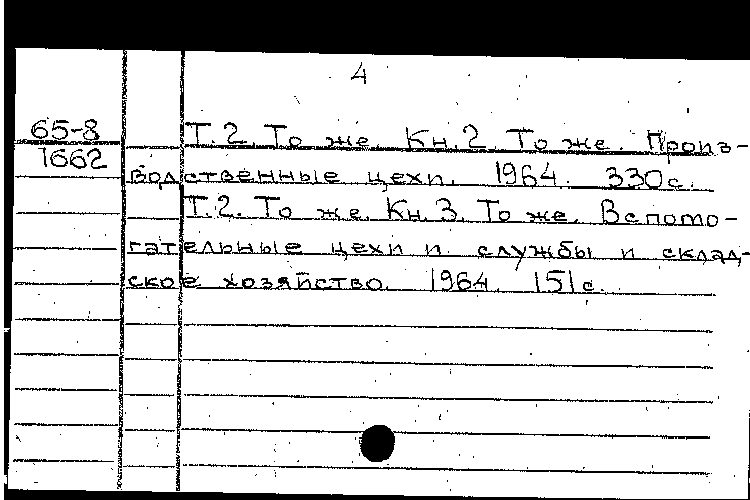 4
65-8 Т.2. То же. Кн.2. То же. Произ-
1662 водственные цехи. 1964. 330с.
Т.2. То же. Кн.3. То же. Вспомо-
гательные цехи и службы и склад-
ское хозяйство. 1964. 151с.